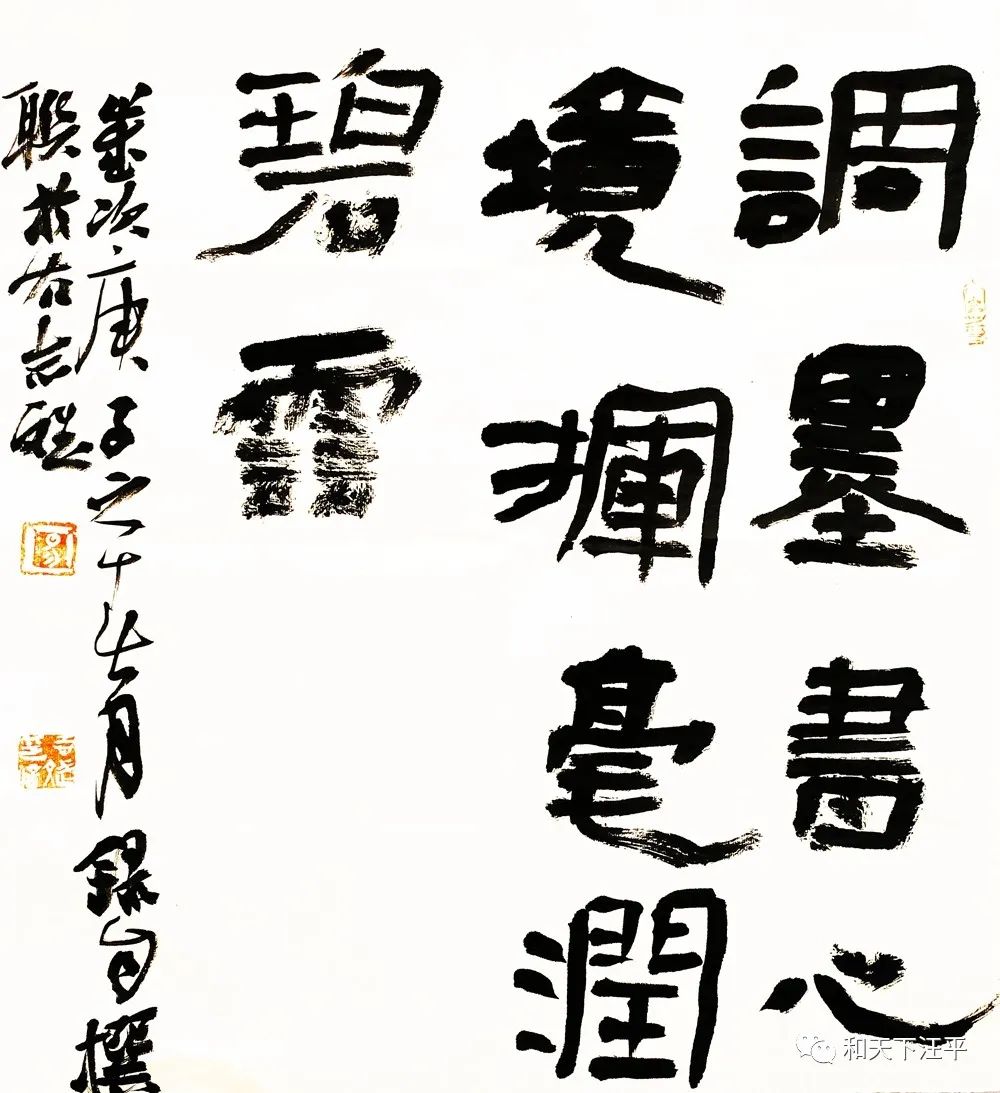 調墨書心
境揮毫潤
碧雨
歲次庚子之十月錄自撰
聯於
和天下汪平